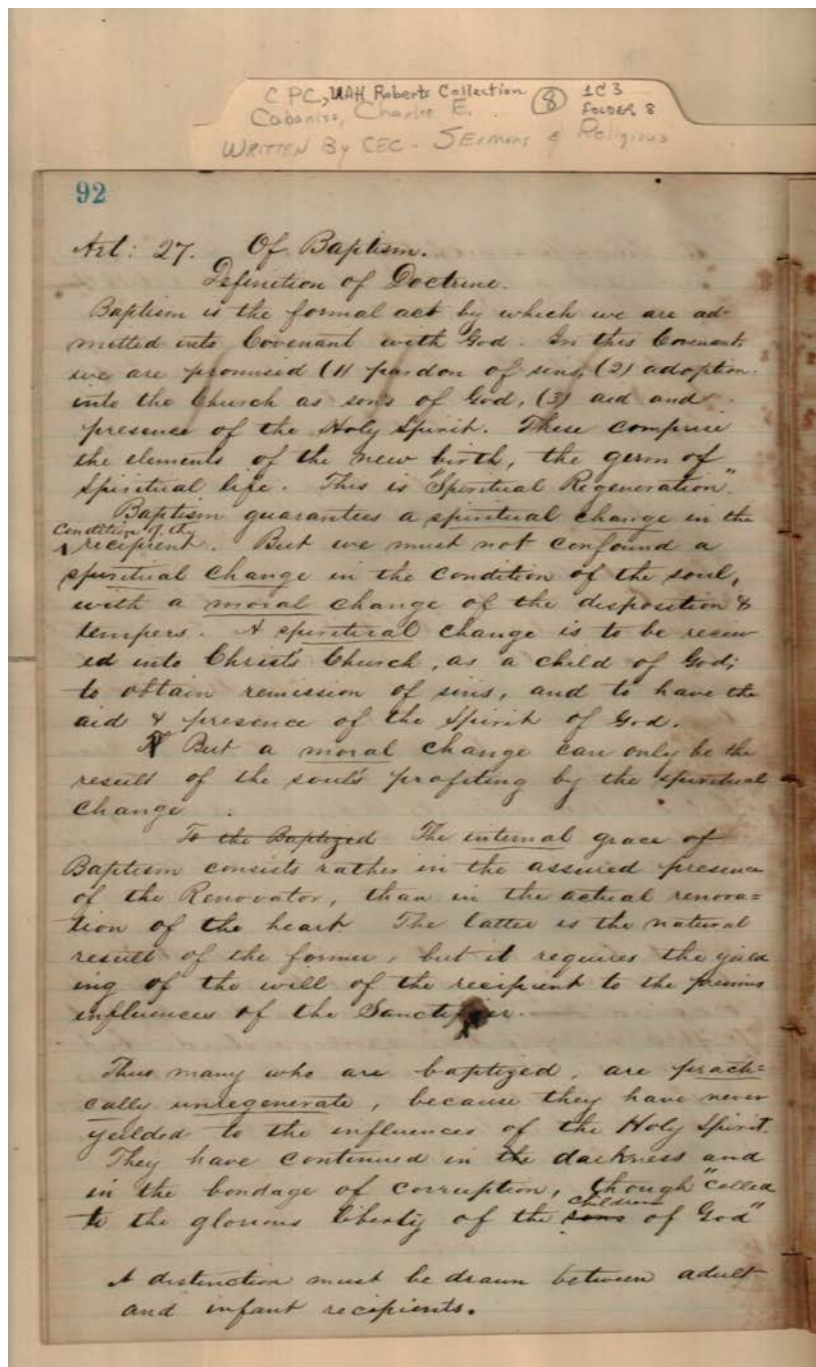 CPC, UAH Roberts Collection (8) 1C3
Cabaniss, Charles E. FOLDER 8
WRITTEN By CEC - SERMONS & Religious
92
Art: 27. Of Baptism.
Definition of Doctrine.
Baptism is the formal act by which we are ad-
mitted into Covenant with God. In this Covenant
we are promised (1) pardon of sins, (2) adoption
into the Church as sons of God, (3) aid and
presence of the Holy Spirit. These comprise
the elements of the new birth, the germ of
Spiritual life. This is "Spiritual Regeneration".
Baptism guarantees a spiritual change in the
condition of the
recipient. But we must not confound a
spiritual change in the condition of the soul,
with a moral change of the disposition &
tempers. A spiritual change is to be receiv
ed into Christ's Church, as a child of God;
to obtain remission of sins, and to have the
aid & presence of the Spirit of God.
But a moral change can only be the
result of the soul's profiting by the spiritual
change.
To the Baptized The internal grace of
Baptism consists rather in the assured presence
of the Renovator, than in the actual renova=
tion of the heart. The latter is the natural
result of the former, but it requires the yield
ing of the will of the recipient to the previous
influences of the Sanctifier.
Thus many who are baptized, are practi=
cally unregenerate, because they have never
yeilded to the influences of the Holy Spirit.
They have continued in the darkness and
in the bondage of corruption, though "called
children
to the glorious liberty of the sons of God"
A distinction must be drawn between adult
and infant recipients.